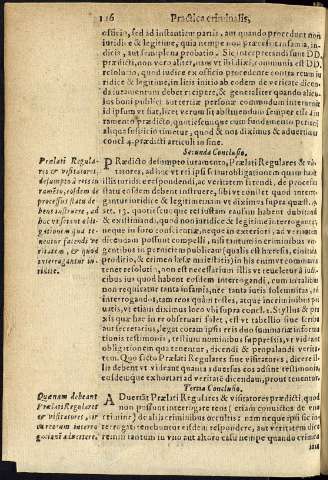 116 Practica criminalis,
officio, sed ad instantiam partis, aut quando procedunt non
iuridice & legitime, quia nempe non præcessit infamia, indi-
cia, aut semiplena probatio. Sic interpretandi sunt DD.
prædicti, non vero aliter, nam vt ibi dixi, communis est ista
resolutio, quod iudice ex officio procedente contra reum iu
ridice & legitime, in litis initio ab eodem de veritate dicen-
da iuramentum debet recipere, & generaliter quando alicu-
ius boni publici aut tertiæ personæ commodum interuenit
id ipsum vt fiat, licet verum sit
aliqua suspicio timetur, quod & nos diximus & aduertimus
concl. 4. prædicti articuli in fine.
Secunda Conclusio.
Prælati Regula-
res & visitatores,
desumpto à reis iu
ramento, eosdem de
processus statu de-
bent instruere, ad
hoc vt sciant obli-
gationem qua te-
neutur facendæ ve
ritatem, & quod
interrogantur in-
sistite.
PRædicto desumpto iuramento, Prælati Regulares & vi-
sitatores, ad hoc vt rei ipsi suam obligationem quam habent
illis iuridice respondendi, ac veritatem fatendi, de processus
statu eosdem debent instruere,
guntur iuridice & legitime
art. 13. quotiescunque rei iustam causam habent dubitandi
& existimandi, quod non iuridice & legitime interrogantur,
neque in foro conscientiæ, neque in exteriori, ad veritatem
dicendam possunt compelli, nisi tantum in criminibus ver-
gentibus in perniciem publicam (qualia est hæresis, ciuitatis
proditio, & crimen læsæ maiestatis) in his enim vt communis
tenet resolutio, non est necessarium illis vt reueletur à iudi-
cibus ius quod habent eosdem interrogandi, cum in talibus
non requiratur tanta infamia, nec tanta iuris solemnitas, ad
interrogandos, tam reos quam testes, atque in criminibus pri-
uatis, vt etiam diximus loco vbi supra concl. 2. Stylus & pra
xis quæ hac in re obseruari solet, est vt tabellio siue scriba
aut secretarius, legat coram ipsis reis duo summariæ informa
tionis testimonia, testium nominibus suppressis, vt videant
obligationem qua tenentur, dicendi & propalandi verita-
tem. Quo facto Prælati Regulares siue visitatores, dicere il-
lis debent vt videant quanta aduersus eos adsunt testimonia,
eosdemque exhortari ad veritatē dicendam, prout tenentur.
Tertia Conclusio.
Quænam debeant
Prælati Regulares
et visitatores, cir
ca reorum interro
gationē aduertere.
ADuertāt Prælati Regulares & visitatores prædicti, quod
non possunt interrogare reos (etiam conuictos de vno
crimine) de alijs criminibus occultis: nam neque ipsi sic inter
rogati, tenebuntur eisdem respondere, aut veritatem dicere,
nisi tantum in vno aut altero casu nempe quando crimen